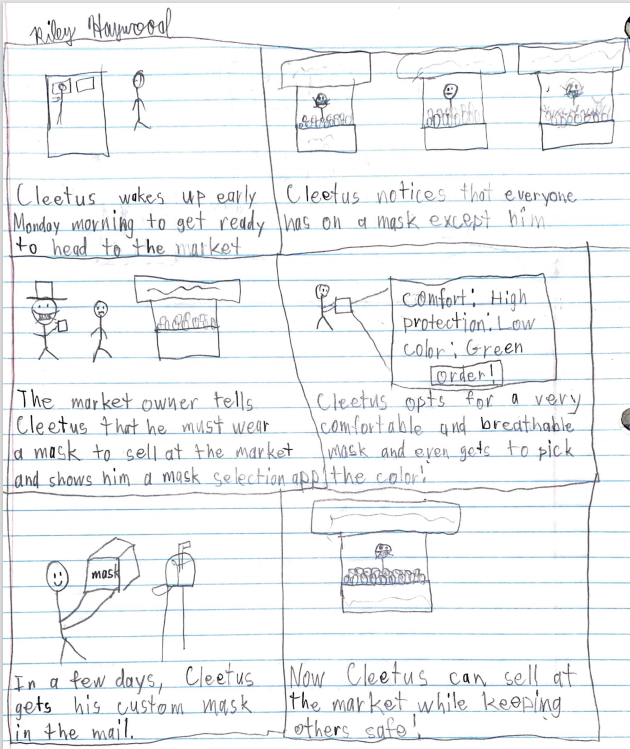 Riley Haywood
Cleetus wakes up early
Monday morning to get ready
to head to the market
Cleetus notices that everyone
has on a mask except him
The market owner tells
Cleetus that he must wear
a mask to sell at the market
and shows him a mask selection app
comfort: High
protection: Low
color: Green
order!
Cleetus opts for a very
comfortable and breathable
mask and even gets to pick
the color!
mask
In a few days, Cleetus
gets his custom mask
in the mail.
Now Cleetus can sell at
the market while keeping
others safe!